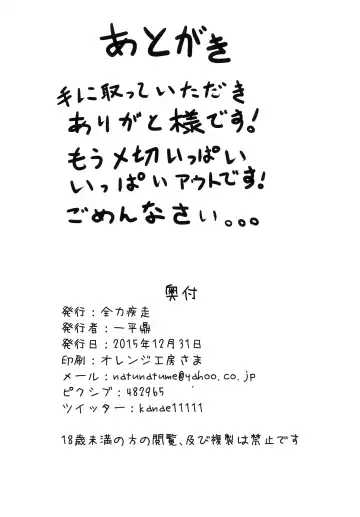 あとがき
手に取っていただき
ありがと様です!
もう〆切いっぱい
いっぱいアウトです!
ごめんなさい。。。
奥付
発行:全力疾走
発行者:一平鼎
発行日:2015年12月31日
印刷:オレンジ工房さま
メール:natunatume@yahoo.co.jp
ピクシブ:482965
ツイッター:kanae11111
18歳未満の方の閲覧、及び複製は禁止です